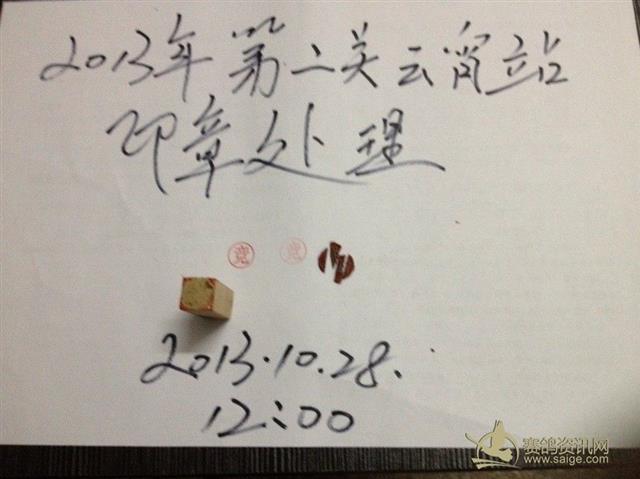 2013年第二关云霄站
印章处理
竞 竞
2013.10.28.
12:00
赛鸽资讯网
www.saige.com